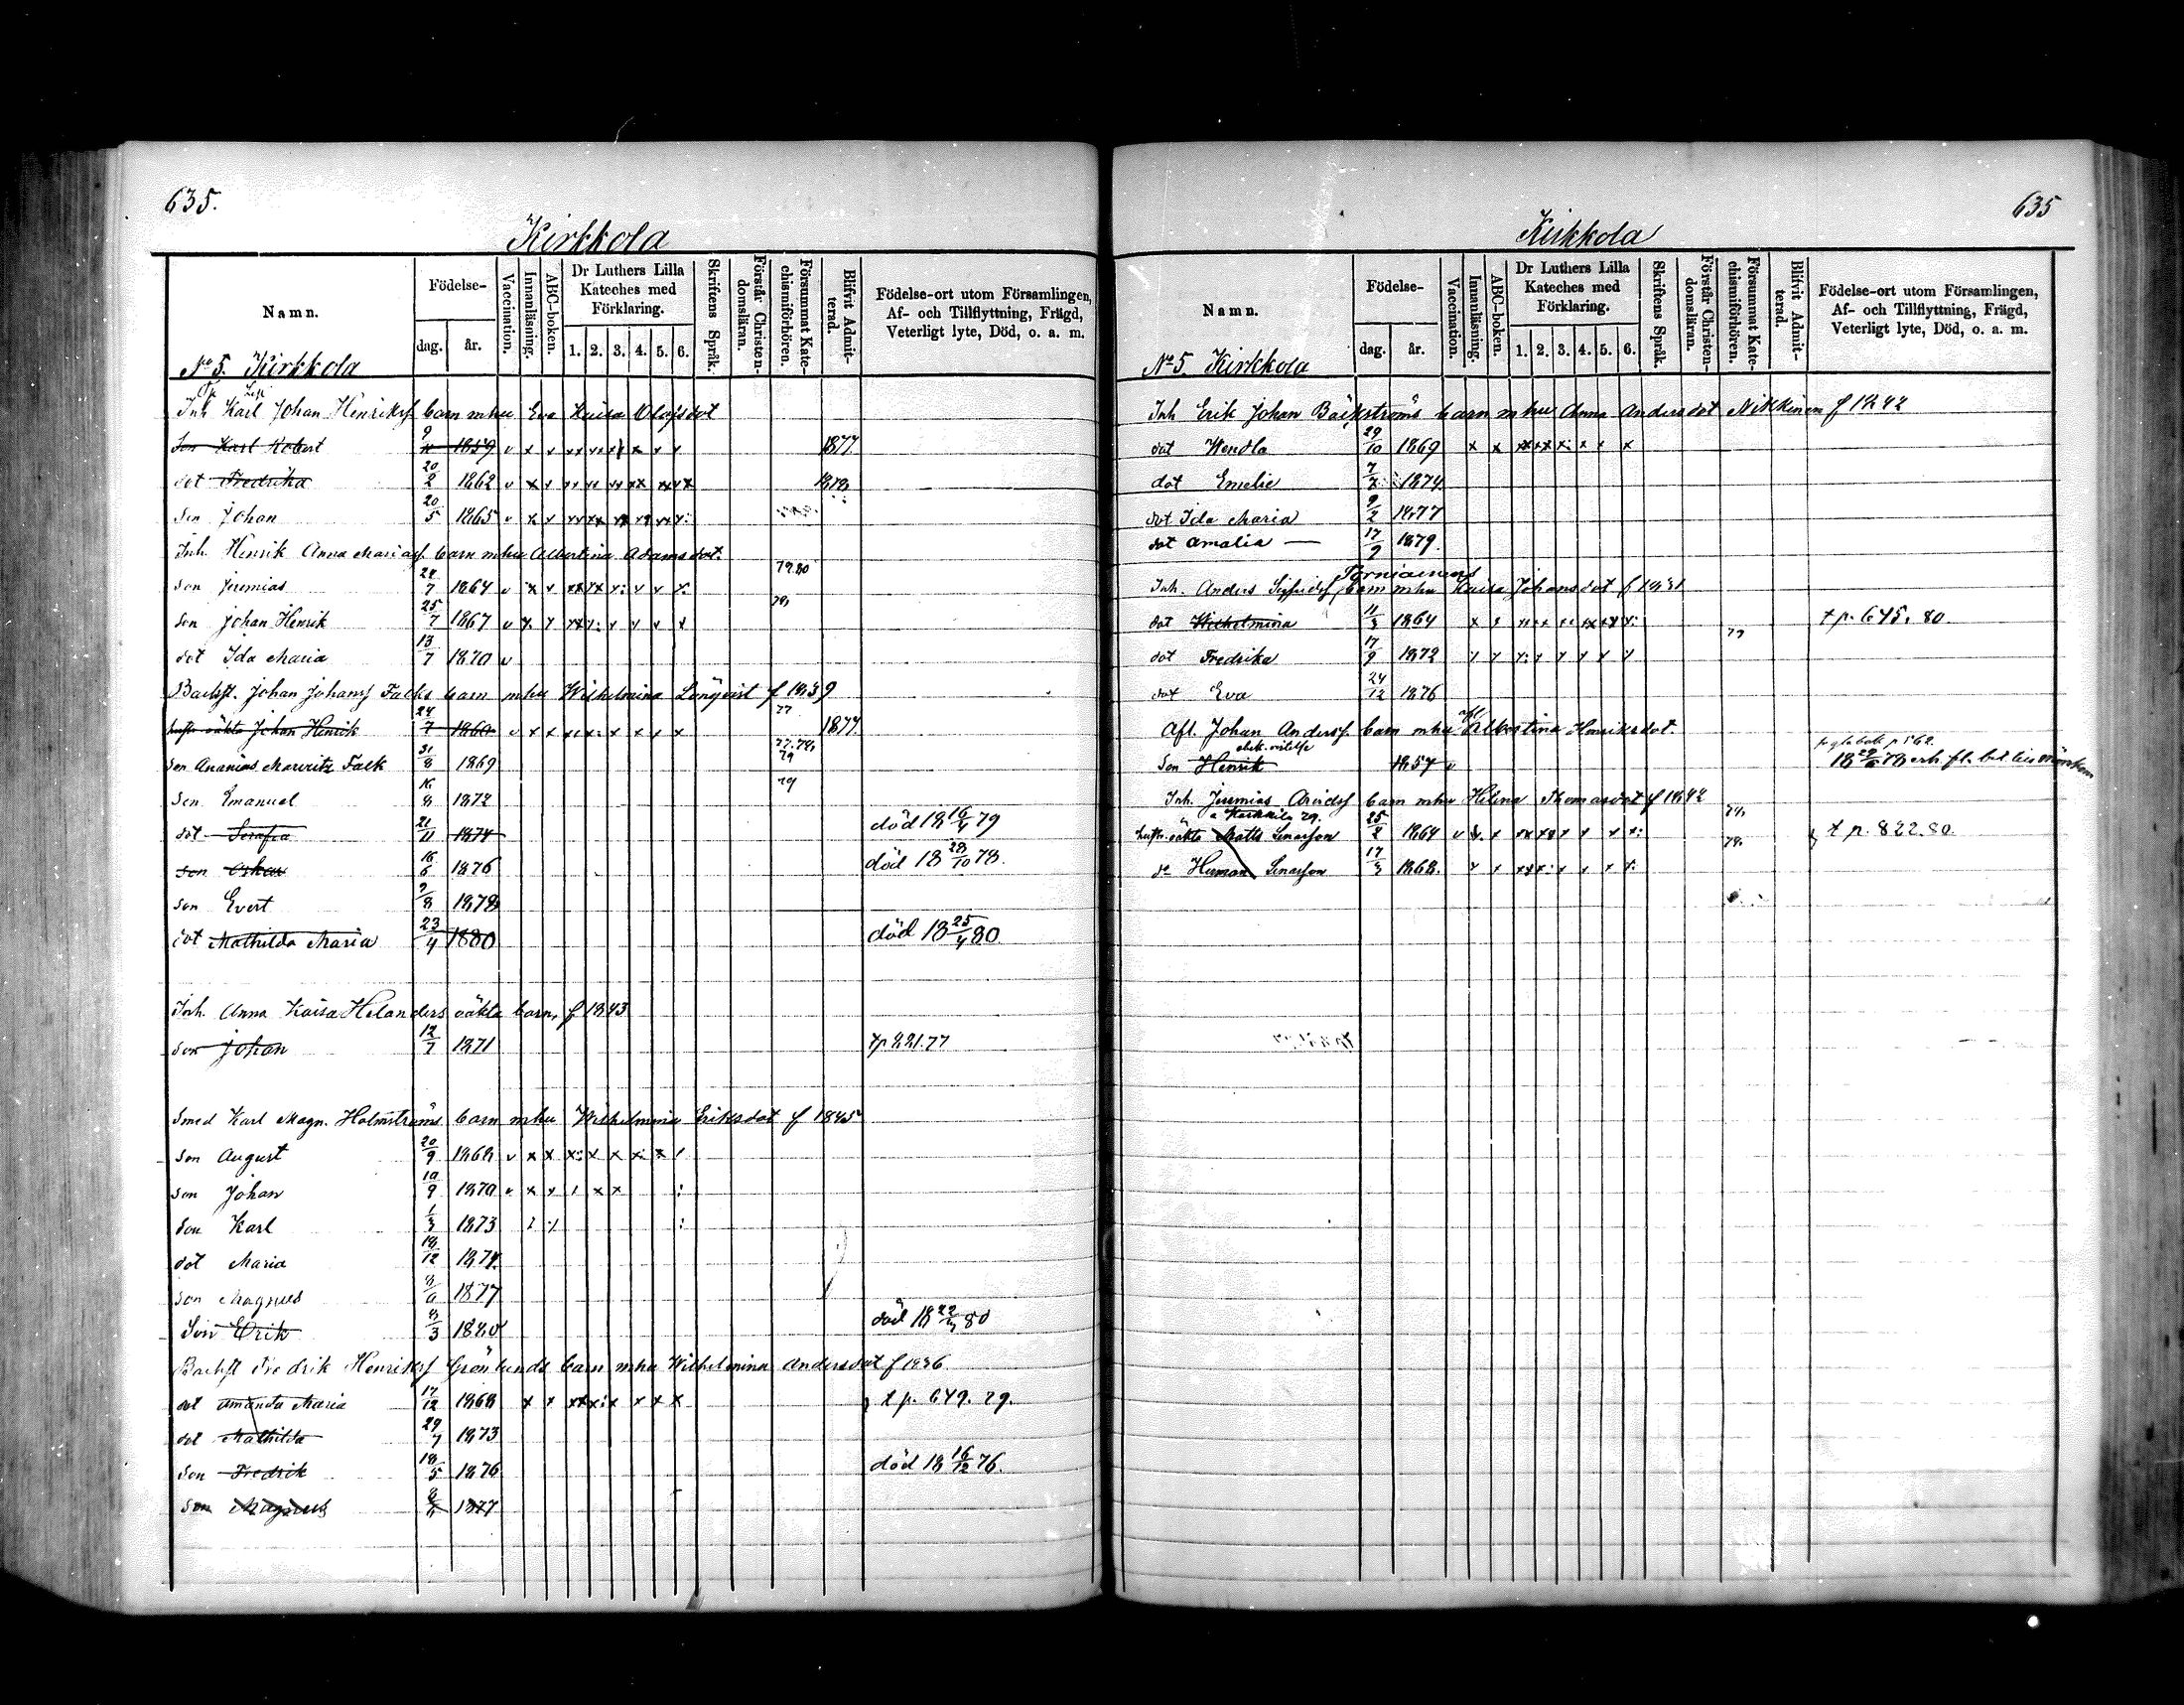 635.
Kirkkola
Namn.
Födelse-
dag.
år.
Vaccination.
Innanläsning.
ABC-boken.
Dr Luthers Lilla
Kateches med
Förklaring.
1. 2. 3. 4. 5. 6.
Skriftens Språk.
Förstår Christen-
domsläran.
Försummat Kate-
chismiförhören.
Blifvit Admit-
terad.
Födelse-ort utom Församlingen,
Af- och Tillflyttning, Frägd,
Veterligt lyte, Död, o. a. m.
No 5. Kirkkola
Inh Karl Johan Henrikss. barn m hu Eva Kaisa Olofsdot
Son Karl Robert 1859 v 1877
dot Fredrika 20/2 1862 v 1878
Son Johan 20/5 1865 v
Inh. Henrik Anna Mariass. barn m hu Albertina Adamsdot. 79.80
son Jeremias 7 1864 v
son Johan Henrik 25/7 1867 v
dot Ida Maria 13/7 1870 v
Backst. Johan Johanss Falks barn m hu Wilhelmina Lönqvist f 1839
hustr. oäkta Johan Henrik 24/7 1860 v 77 1877
son Ananias Mauritz Falk 31/8 1869 77.78, 79
son Emanuel 16/8 1872 79
dot Serafia 21/11 1874 död 18 16/4 79
son Oskar 16/6 1876 död 18 28/10 78.
son Evert 2/8 1878
dot Mathilda Maria 23/4 1880 död 18 25/4 80
Inh. Anna Kaisa Helanders oäkta barn, f 1843
son Johan 12/7 1871 t p 221.77
Smed Karl Magn. Holmströms barn m hu Wilhelmina Eriksdot f 1845
son August 20/9 1868 v
son Johan 10/9 1870 v
son Karl 1/3 1873
dot Maria 18/12 1874
son Magnus 8/6 1877
Son Erik 8/3 1880 död 18 22/4 80
Backst Fredrik Henrikss Grönlunds barn m hu Wilhelmina Andersdot f 1836
dot Amanda Maria 17/12 1868 t p. 649. 79.
dot Mathilda 29/7 1873
Son Fredrik 18/5 1876 död 18 16/12 76.
son Magnus 8/6 1877
635
Kirkkola
Namn.
Födelse-
dag.
år.
Vaccination.
Innanläsning.
ABC-boken.
Dr Luthers Lilla
Kateches med
Förklaring.
1. 2. 3. 4. 5. 6.
Skriftens Språk.
Förstår Christen-
domsläran.
Försummat Kate-
chismiförhören.
Blifvit Admit-
terad.
Födelse-ort utom Församlingen,
Af- och Tillflyttning, Frägd,
Veterligt lyte, Död, o. a. m.
No 5. Kirkkola
Inh Erik Johan Bäckströms barn m hu Anna Andersdot Nikkinen f 1842
dot Wendla 29/10 1869
dot Emelie 1874
dot Ida Maria 9/2 1877
dot Amalia 17/9 1879.
Törniainens
Inh. Anders Sigfridss barn m hu Kaisa Johansdot f 1831
dot Wilhelmina 11/3 1864 t p. 645. 80.
dot Fredrika 17/9 1872 79
dot Eva 24/12 1876
Afl. Johan Anderss. barn m hu afl Albertina Henriksdot.
Son Henrik 1857 v
Inh. Jeremias Arvidss barn m hu Helena Thomasdot f 1842
hustr. oäkta Matts Lenasson 1864 v 78, t p. 822. 80.
de Herman Lenasson 17/3 1868. 78.